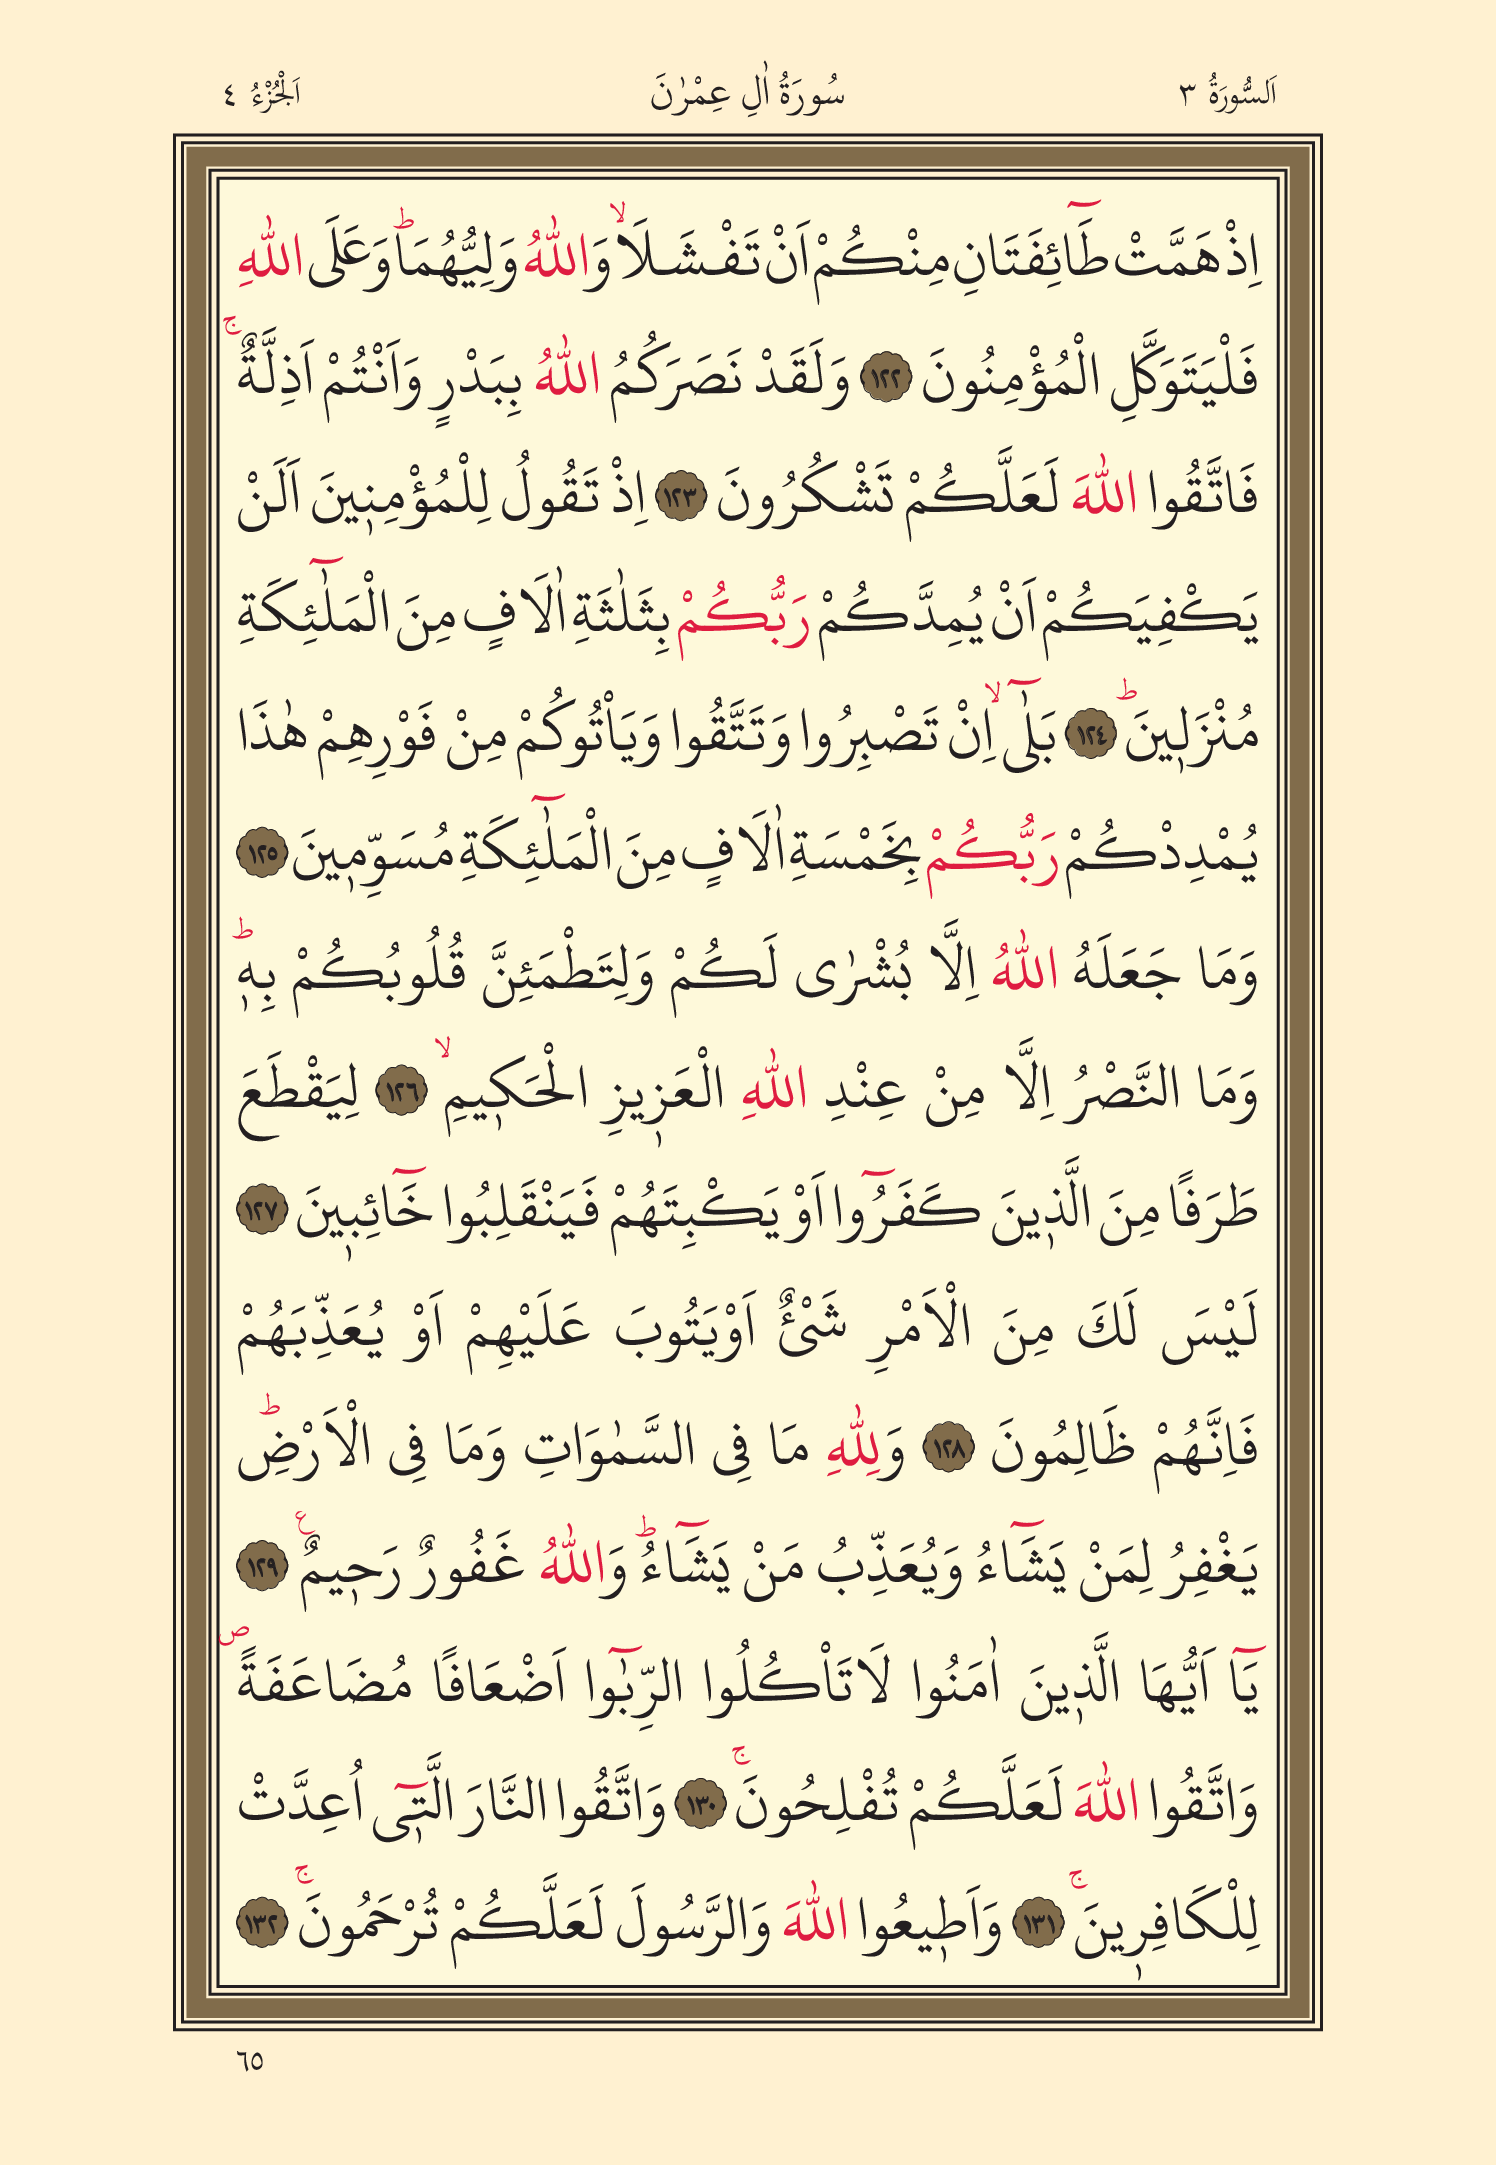 اَلسُّورَةُ ٣ سُورَةُ اٰلِ عِمْرٰنَ اَلْجُزْءُ ٤
اِذْ هَمَّتْ طَٓائِفَتَانِ مِنْكُمْ اَنْ تَفْشَلَاۙ وَاللّٰهُ وَلِيُّهُمَاۜ وَعَلَى اللّٰهِ
فَلْيَتَوَكَّلِ الْمُؤْمِنُونَ ﴿١٢٢﴾ وَلَقَدْ نَصَرَكُمُ اللّٰهُ بِبَدْرٍ وَاَنْتُمْ اَذِلَّةٌۚ
فَاتَّقُوا اللّٰهَ لَعَلَّكُمْ تَشْكُرُونَ ﴿١٢٣﴾ اِذْ تَقُولُ لِلْمُؤْمِن۪ينَ اَلَنْ
يَكْفِيَكُمْ اَنْ يُمِدَّكُمْ رَبُّكُمْ بِثَلٰثَةِ اٰلَافٍ مِنَ الْمَلٰٓئِكَةِ
مُنْزَل۪ينَۜ ﴿١٢٤﴾ بَلٰٓىۙ اِنْ تَصْبِرُوا وَتَتَّقُوا وَيَاْتُوكُمْ مِنْ فَوْرِهِمْ هٰذَا
يُمْدِدْكُمْ رَبُّكُمْ بِخَمْسَةِ اٰلَافٍ مِنَ الْمَلٰٓئِكَةِ مُسَوِّم۪ينَ ﴿١٢٥﴾
وَمَا جَعَلَهُ اللّٰهُ اِلَّا بُشْرٰى لَكُمْ وَلِتَطْمَئِنَّ قُلُوبُكُمْ بِه۪ۜ
وَمَا النَّصْرُ اِلَّا مِنْ عِنْدِ اللّٰهِ الْعَز۪يزِ الْحَك۪يمِۙ ﴿١٢٦﴾ لِيَقْطَعَ
طَرَفًا مِنَ الَّذ۪ينَ كَفَرُٓوا اَوْ يَكْبِتَهُمْ فَيَنْقَلِبُوا خَٓائِب۪ينَ ﴿١٢٧﴾
لَيْسَ لَكَ مِنَ الْاَمْرِ شَيْءٌ اَوْ يَتُوبَ عَلَيْهِمْ اَوْ يُعَذِّبَهُمْ
فَاِنَّهُمْ ظَالِمُونَ ﴿١٢٨﴾ وَلِلّٰهِ مَا فِى السَّمٰوَاتِ وَمَا فِى الْاَرْضِۜ
يَغْفِرُ لِمَنْ يَشَٓاءُ وَيُعَذِّبُ مَنْ يَشَٓاءُۜ وَاللّٰهُ غَفُورٌ رَح۪يمٌ ع ﴿١٢٩﴾
يَٓا اَيُّهَا الَّذ۪ينَ اٰمَنُوا لَا تَاْكُلُوا الرِّبٰٓوا اَضْعَافًا مُضَاعَفَةًۖ
وَاتَّقُوا اللّٰهَ لَعَلَّكُمْ تُفْلِحُونَۚ ﴿١٣٠﴾ وَاتَّقُوا النَّارَ الَّت۪ٓى اُعِدَّتْ
لِلْكَافِر۪ينَۚ ﴿١٣١﴾ وَاَط۪يعُوا اللّٰهَ وَالرَّسُولَ لَعَلَّكُمْ تُرْحَمُونَۚ ﴿١٣٢﴾
٦٥